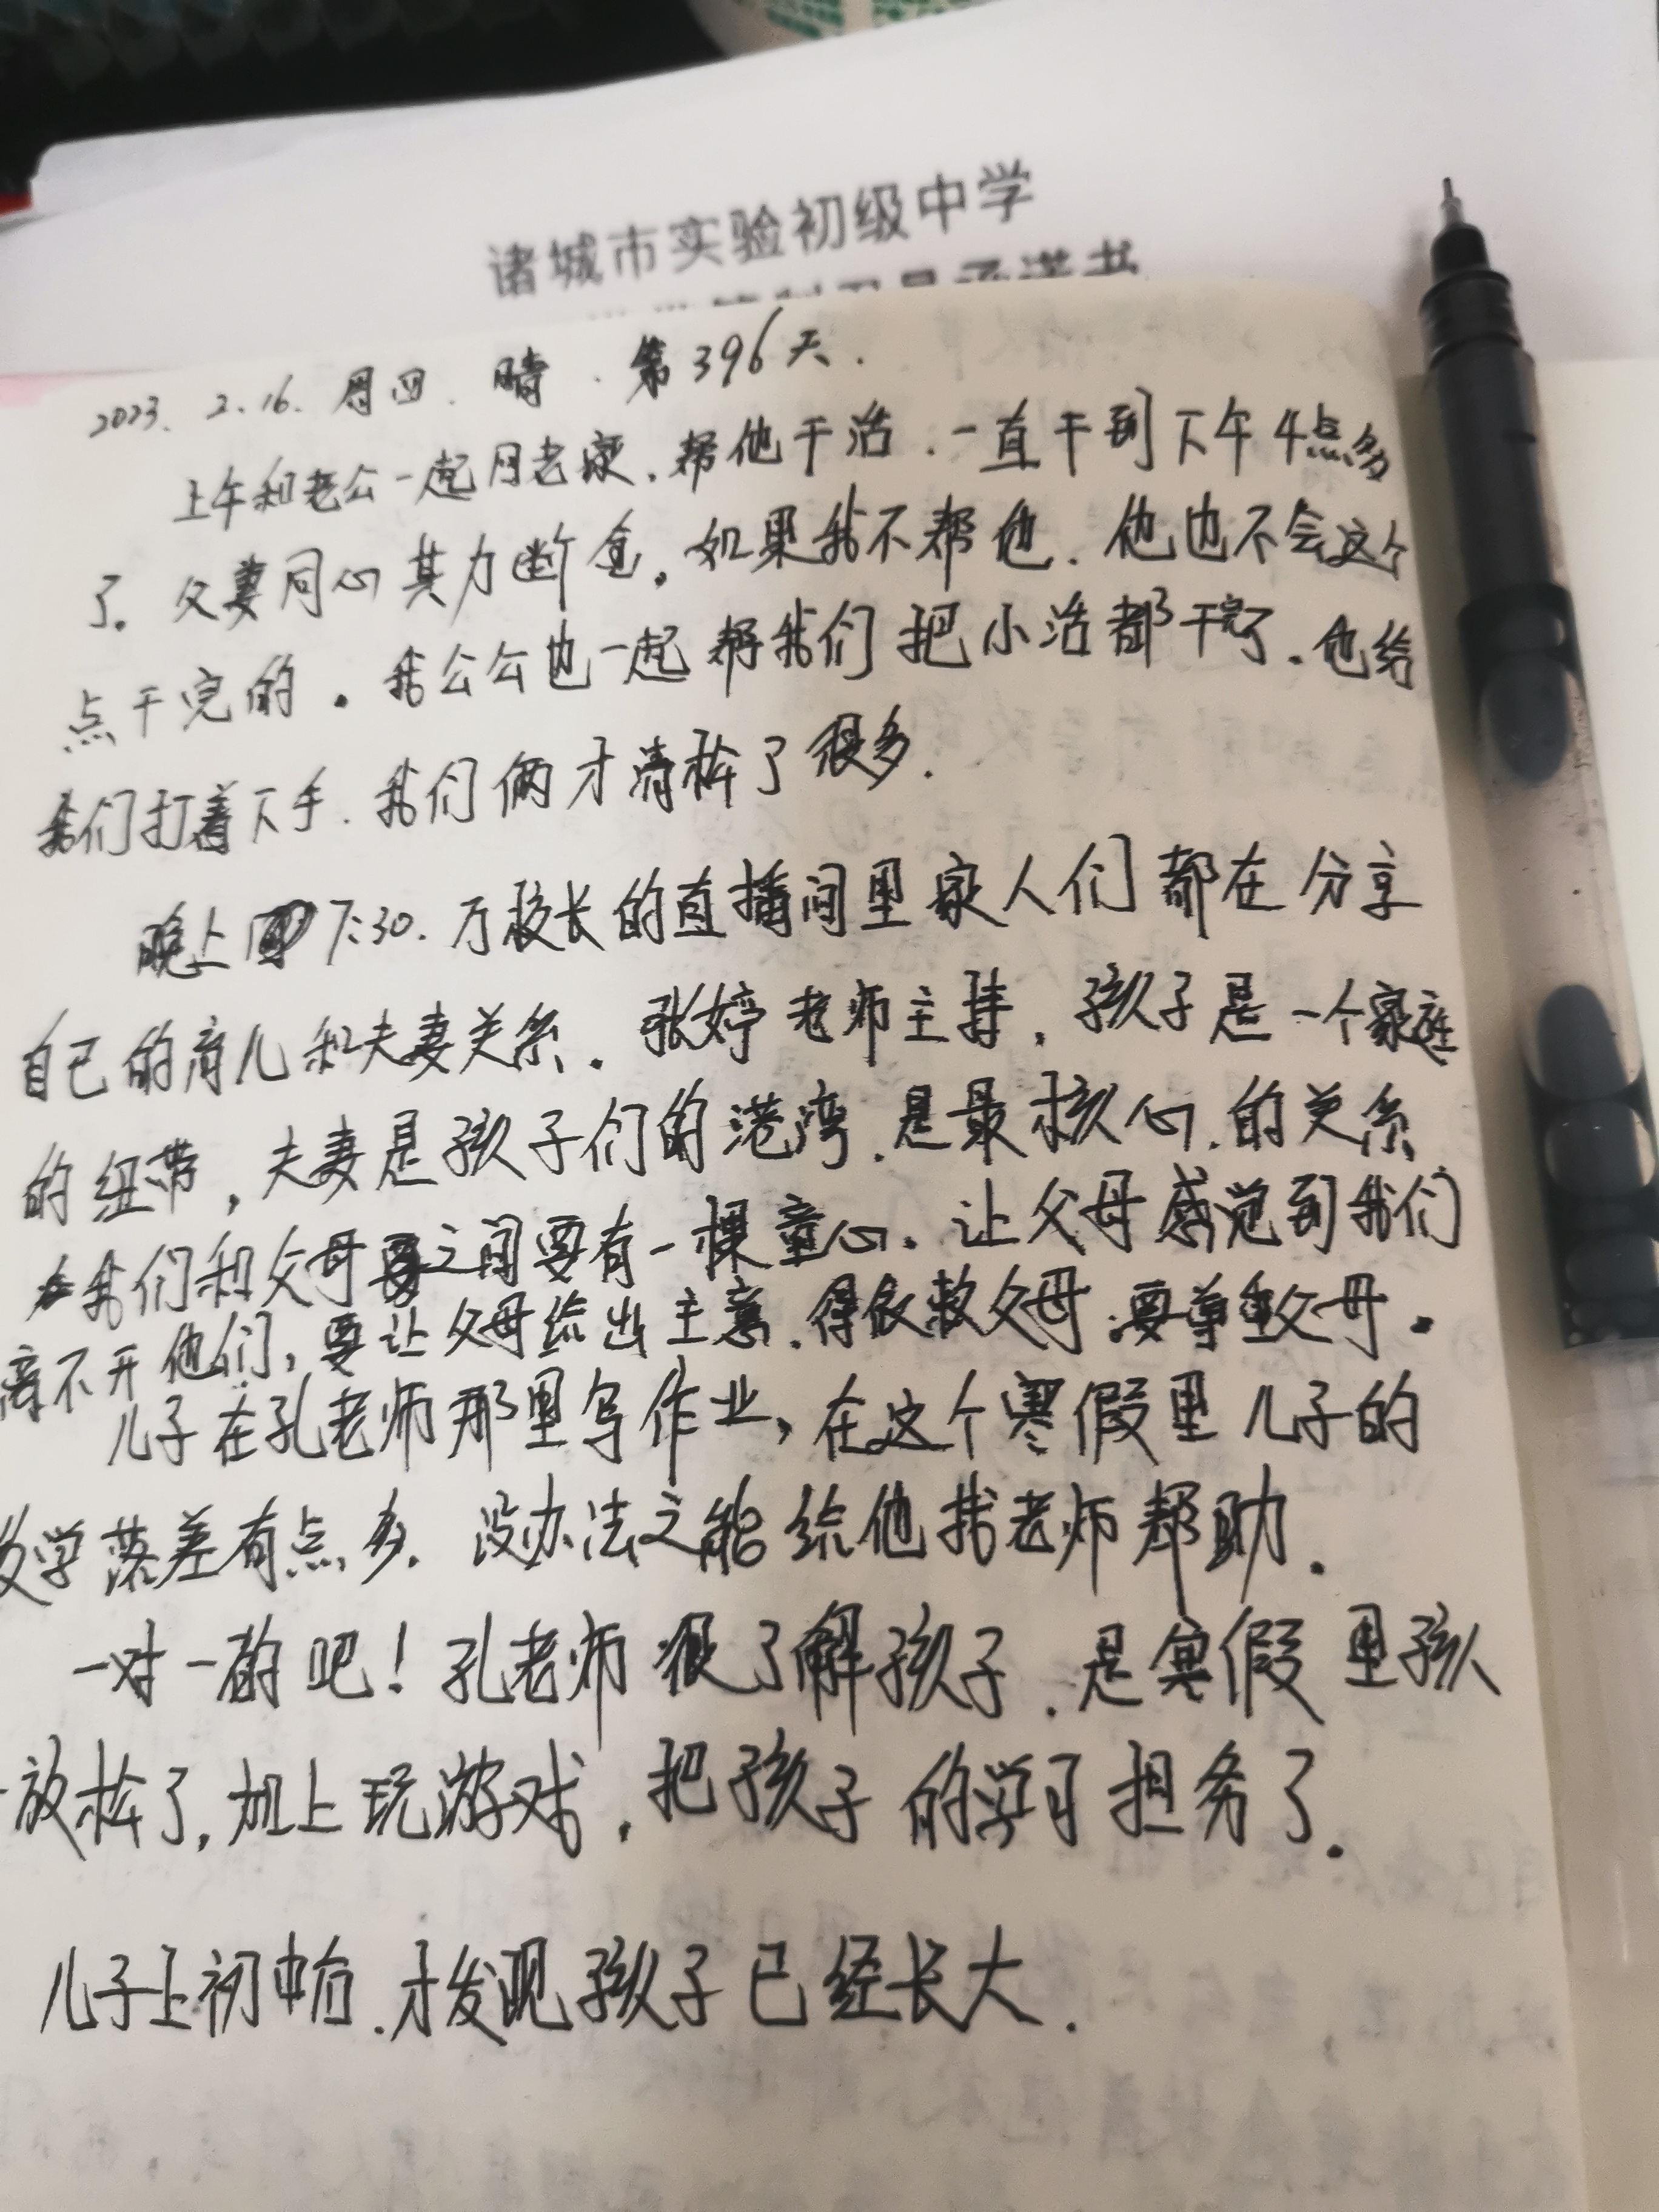 诸城市实验初级中学
承诺书
2023. 2.16. 周四. 晴. 第396天.
上午和老公一起回老家.帮他干活.一直干到下午4点多
了.父妻同心其力断金.如果我不帮他.他也不会这个
点干完的.我公公也一起帮我们把小活都干完了.也给
我们打着下手.我们俩才清松了很多.
晚上7:30.万校长的直播间里家人们都在分享
自己的育儿和夫妻关系.张婷老师主持,孩子是一个家庭
的纽带,夫妻是孩子们的港湾.是最核心.的关系
我们和父母之间要有一棵童心.让父母感觉到我们
离不开他们,要让父母给出主意.得依救父母.要尊重父母.
儿子在孔老师那里写作业,在这个寒假里儿子的
数学落差有点多.没办法之能给他找老师帮助.
一对一的吧!孔老师很了解孩子.是寒假里孩
放松了,加上玩游戏.把孩子的学习担务了.
儿子上初中后.才发现孩子已经长大.